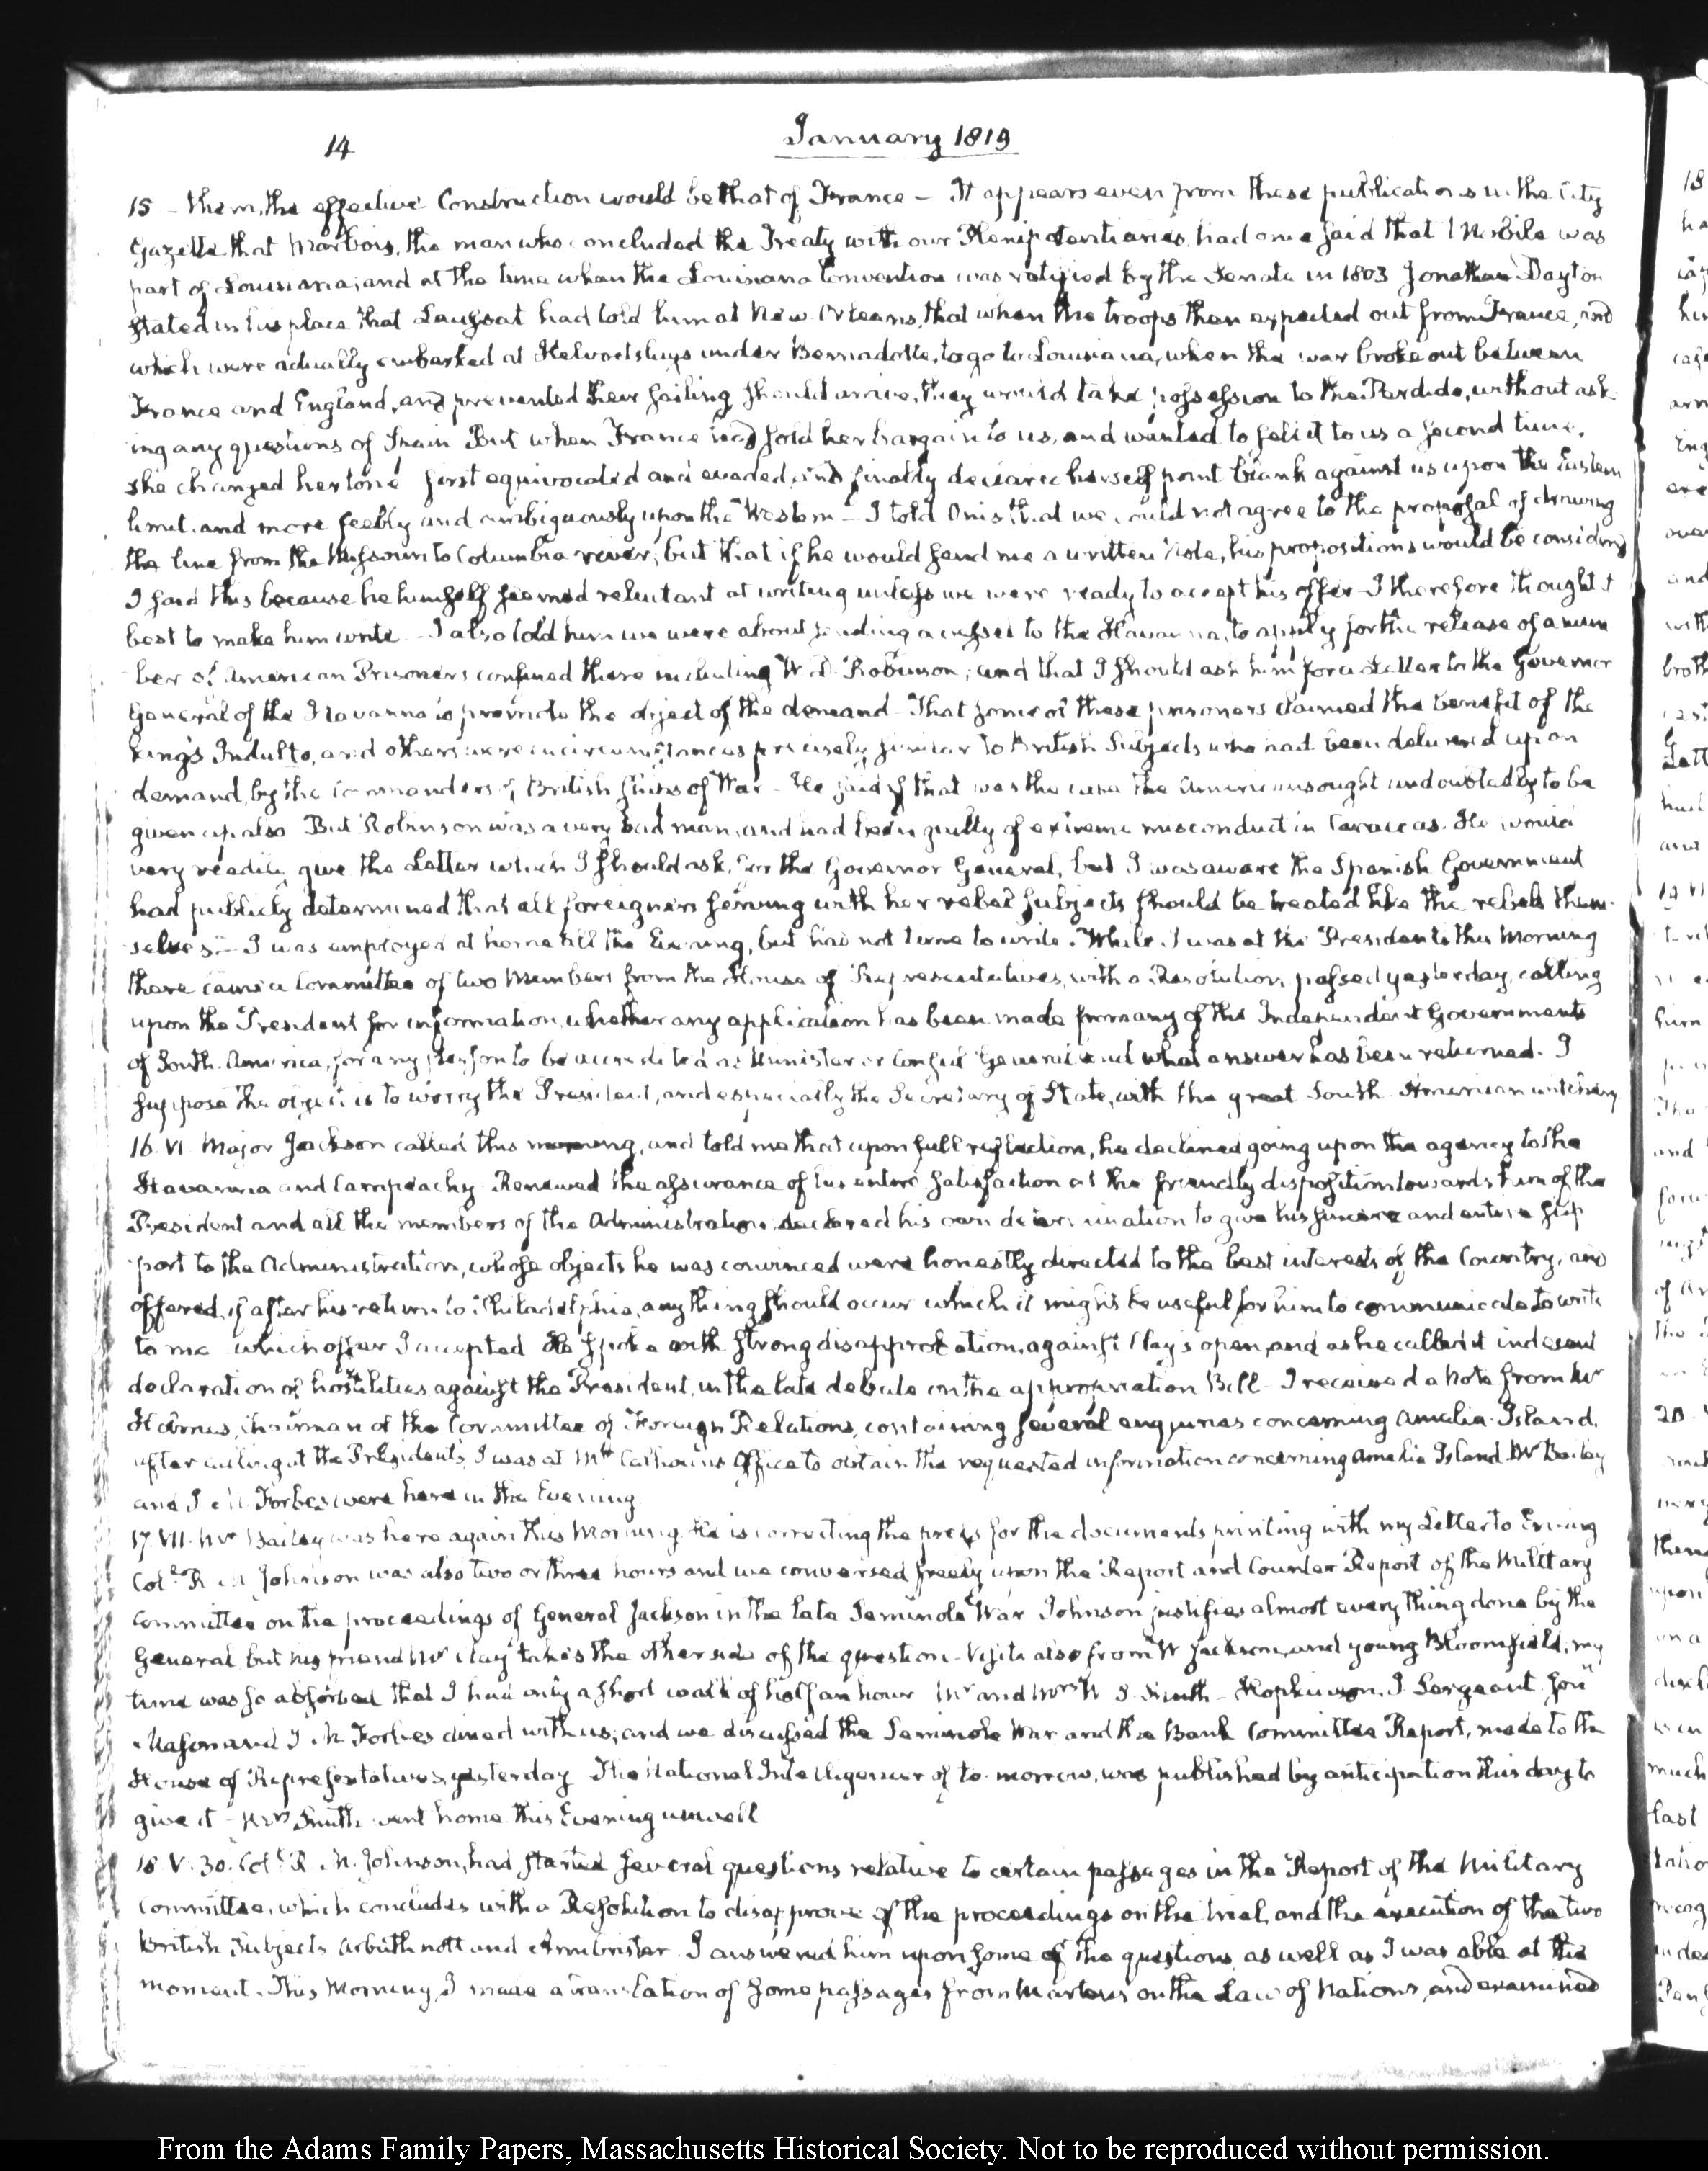 14
January 1819
15 – them, the effective Construction would be that of France – It appears even from these publications in the City
Gazette that Marbois, the man who concluded the Treaty with our Plenipotentiaries, had once said that Mobile was
part of Louisiana; and at the time when the Louisiana Convention was ratified by the Senate in 1803 Jonathan Dayton
stated in his place that Laussat had told him at New-Orleans, that when the troops then expected out from France, and
which were actually embarked at Helvoetsluys under Bernadotte, to go to Louisiana, when the war broke out between
France and England, and prevented their sailing should arrive, they would take possession to the Perdido, without ask-
ing any questions of Spain But when France had sold her bargain to us, and wanted to sell it to us a second time,
she changed her tone first equivocated and evaded, and finally declared herself point blank against us upon the Eastern
limit, and more feebly and ambiguously upon the Western – I told Onis that we could not agree to the proposal of drawing
the line from the Missouri to Columbia river; but that if he would send me a written Note, his propositions would be considered
I said this because he himself seemed reluctant at writing unless we were ready to accept his offer – I therefore thought it
best to make him write – I also told him we were about sending a vessel to the Havanna, to apply for the release of a num
ber of American Prisoners confined there including W. D. Robinson; and that I should ask him for a Letter to the Governor
General of the Havanna to promote the object of the demand – That some of these prisoners claimed the benefit of the
king's Indulto, and others were in circumstances precisely similar to British Subjects who had been delivered upon
demand, by the Commanders of British Ships of War – He said if that was the case the Americans ought undoubtedly to be
given up also But Robinson was a very bad man, and had been guilty of extreme misconduct in Caraccas. He would
very readily give the Letter which I should ask, for the Governor General, but I was aware the Spanish Government
had publicly determined that all foreigners serving with her rebel subjects should be treated like the rebels them-
selves. – I was employed at home till the Evening, but had not time to write. While I was at the President's this Morning
there came a Committee of two Members from the House of Representatives, with a Resolution, passed yesterday, calling
upon the President for information, whether any application has been made from any of the Independent Governments
of South-America, for any person to be accredited as Minister or Consul General and what answer has been returned. I
suppose the object is to worry the President, and especially the Secretary of State, with the great South-American witchery
16. VI. Major Jackson called this morning, and told me that upon full reflection, he declined going upon the agency to the
Havanna and Campeachy. Renewed the assurance of his entire satisfaction at the friendly disposition towards him of the
President and all the members of the Administration, declared his own determination to give his sincere and entire sup
port to the Administration, whose objects he was convinced were honestly directed to the best interests of the Country, and
offered, if after his return to Philadelphia, any thing should occur which it might be useful for him to communicate to write
to me which offer I accepted He spoke with strong disapprobation, against Clay's open, and as he called it indecent
declaration of hostilities against the President, in the late debate on the appropriation Bill – I received a Note from Mr
Holmes, Chairman of the Committee of Foreign Relations, containing several enquiries concerning Amelia-Island.
after calling at the President's, I was at Mr Calhoun's Office to obtain the requested information concerning Amelia Island. Mr Bailey
and J. M. Forbes were here in the Evening
17. VII. Mr Bailey was here again this Morning. He is correcting the press for the documents printing with my Letter to Erving
Coll. R. M. Johnson was also two or three hours and we conversed freely upon the Report and Counter Report of the Military
Committee on the proceedings of General Jackson in the late Seminole War Johnson justifies almost every thing done by the
General but his friend Mr Clay takes the other side of the question – Visits also from W Jackson, and young Bloomfield, my
time was so absorbed that I had only a short walk of half an hour Mr and Mrs W. S. Smith – Hopkinson, J. Sergeant. Jonn
Mason and J. M. Forbes dined with us; and we discussed the Seminole War, and the Bank Committee Report, made to the
House of Representatives yesterday The National Intelligencer of to-morrow, was published by anticipation this day to
give it – Mrs Smith went home this Evening unwell
18 V. 30. Coll. R. M. Johnson, had started several questions relative to certain passages in the Report of the Military
Committee, which concludes with a Resolution to disapprove of the proceedings on the trial, and the execution of the two
British Subjects Arbuthnott and Armbrister I answered him upon some of the questions as well as I was able at the
moment. This Morning, I made a translation of some passages from Martens on the Law of Nations, and examined
From the Adams Family Papers, Massachusetts Historical Society. Not to be reproduced without permission.